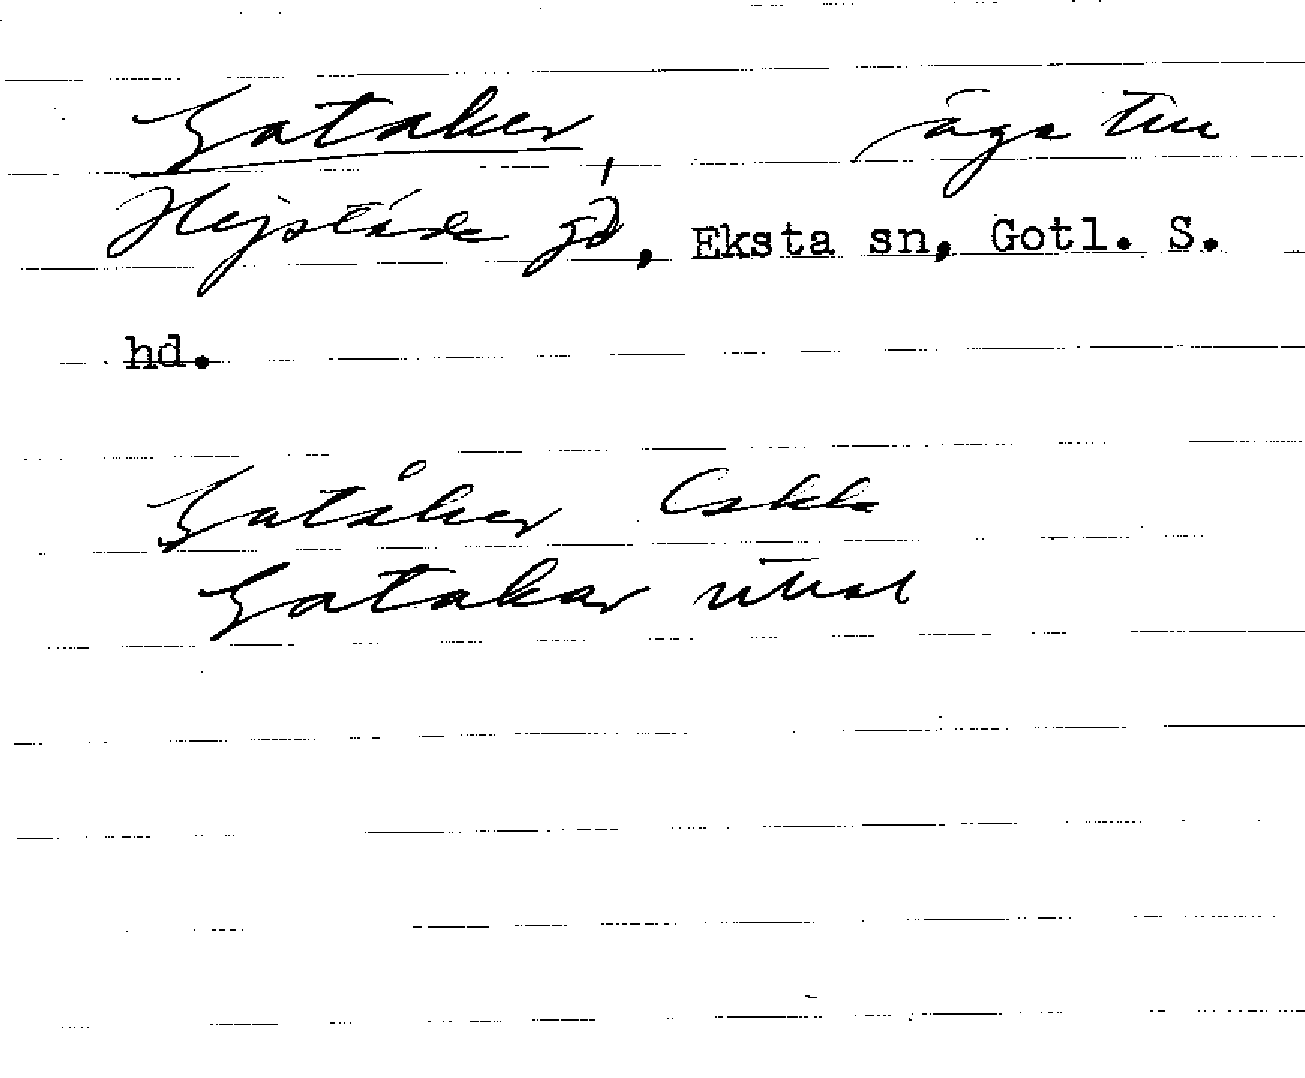 Gataker, äga till
Hejslide gd, Eksta sn, Gotl. S.
hd.
Gatåker
Gatakar uttal